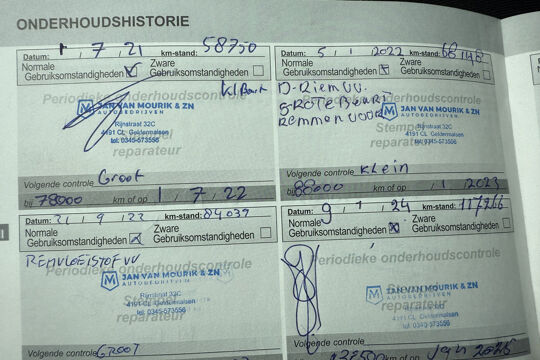 ONDERHOUDSHISTORIE
Datum: 1 / 7 / 21 km-stand: 58750
Normale Gebruiksomstandigheden Zware Gebruiksomstandigheden
kl Beurt
Periodieke onderhoudscontrole
JAN VAN MOURIK & ZN
AUTOBEDRIJVEN
Rijnstraat 32C
4191 CL Geldermalsen
tel. 0345-573556
reparateur
Volgende controle Groot
bij 78000 km of op 1 / 7 / 22
Datum: 5 / 1 / 2022 km-stand:
Normale Gebruiksomstandigheden Zware Gebruiksomstandigheden
D-Riem VV.
GROTE BEURT
REMMEN VOOR
Periodieke onderhoudscontrole
JAN VAN MOURIK & ZN
AUTOBEDRIJVEN
Rijnstraat 32C
4191 CL Geldermalsen
tel. 0345-573556
Stempel
reparateur
Volgende controle Klein
bij 88000 km of op / 1 / 2023
Datum: 21 / 9 / 22 km-stand: 84039
Normale Gebruiksomstandigheden Zware Gebruiksomstandigheden
REMVLOEISTOF VV
Periodieke onderhoudscontrole
JAN VAN MOURIK & ZN
AUTOBEDRIJVEN
Rijnstraat 32C
4191 CL Geldermalsen
tel. 0345-573556
reparateur
Volgende controle
GROOT
Datum: 9 / 1 / 24 km-stand: 117266
Normale Gebruiksomstandigheden Zware Gebruiksomstandigheden
Periodieke onderhoudscontrole
JAN VAN MOURIK & ZN
AUTOBEDRIJVEN
Rijnstraat 32C
4191 CL Geldermalsen
tel. 0345-573556
reparateur
Volgende controle
km of op 2025